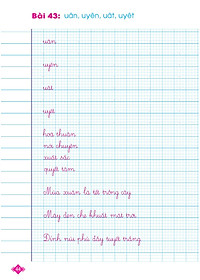 Bài 43: uân, uyên, uât, uyêt
uân
uyên
uât
uyêt
hoà thuận
nói chuyện
xuất sắc
quyết tâm
Mùa xuân là tết trồng cây.
Mây đen che khuất mặt trời.
Đỉnh núi phủ đầy tuyết trắng.